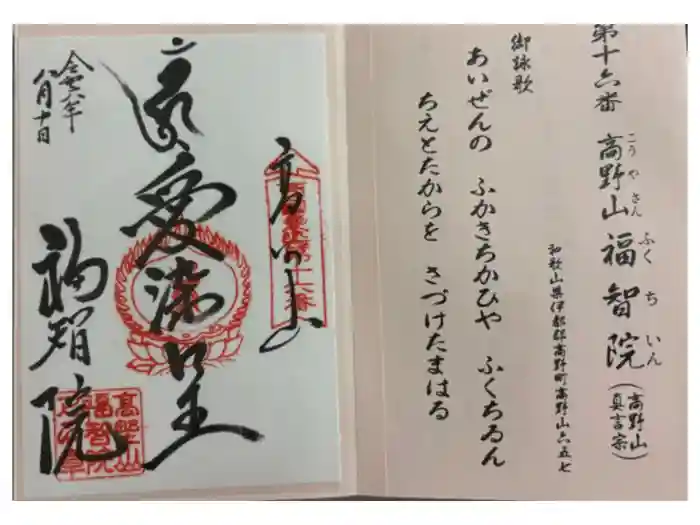 第十六番 高野山 福智院 (高野山真言宗)
こうやさん ふくちいん
和歌山県伊都郡高野町高野山六五七
御詠歌
あいぜんの ふかきちかひや ふくちゐん
ちえとたからを さづけたまはる
高野山
愛染明王
福智院
八月十日
高野山
福智院